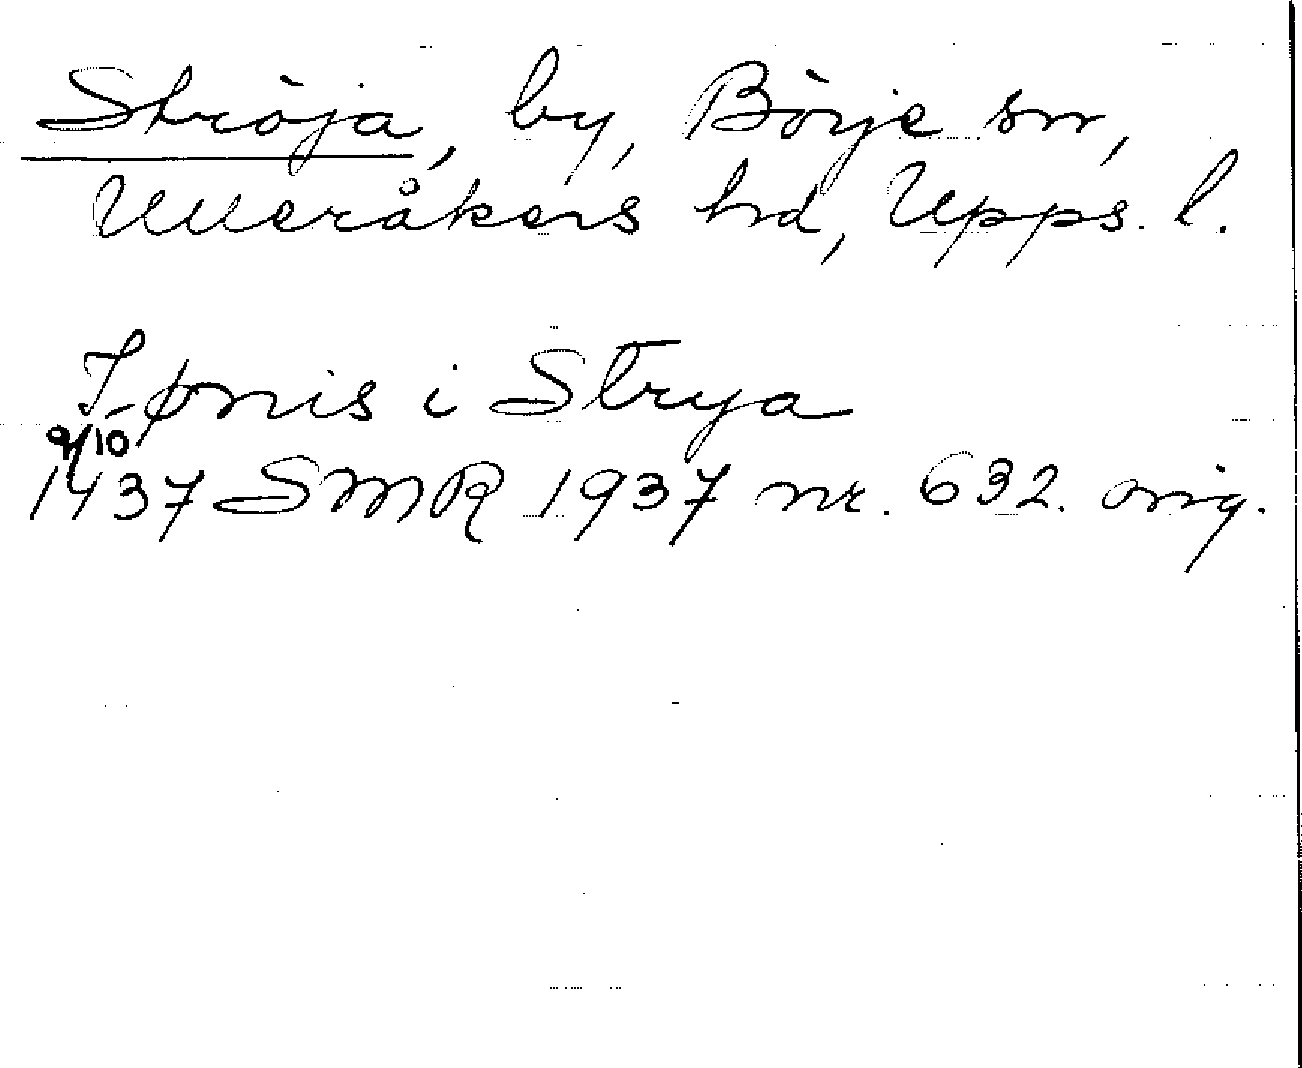 Ströja, by, Börje sn,
Ulleråkers hd, Upps. l.
i Strya
9/10
1437 SMR 1937 nr. 632. orig.